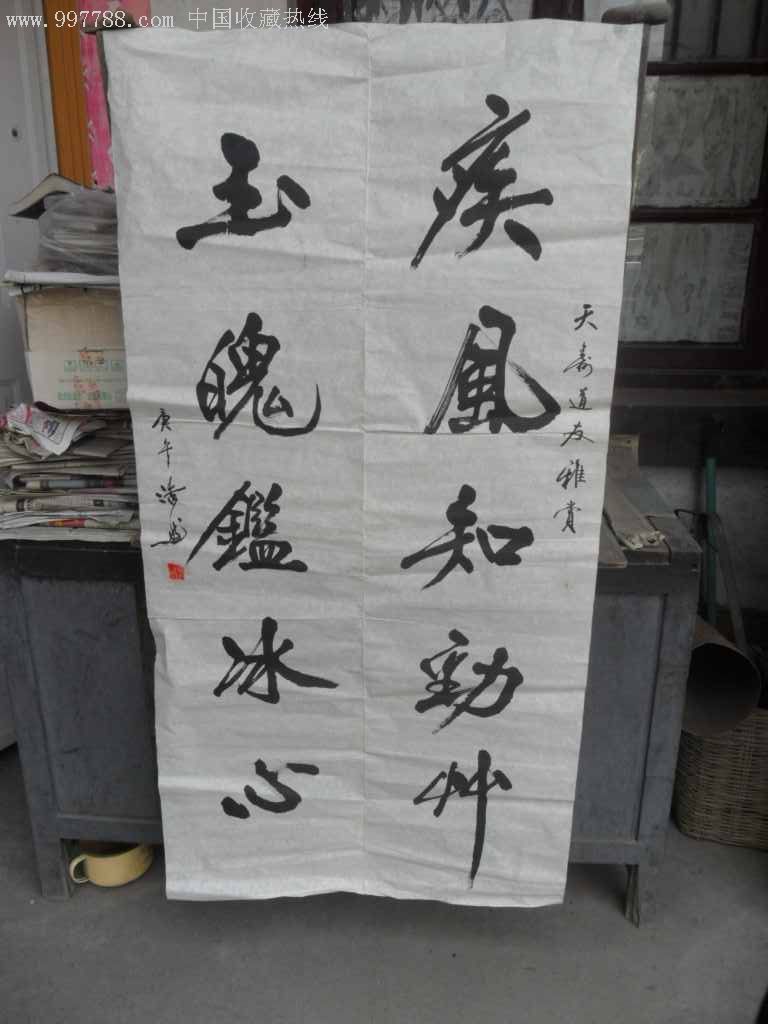 www.997788.com 中国收藏热线
天壽道友雅賞
疾風知勁艸
玉魄鑑冰心
庚午